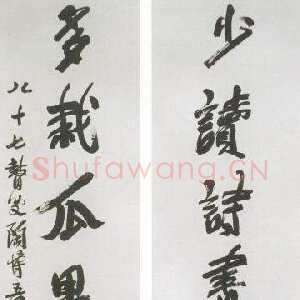 少讀詩書
多栽瓜果
八十七瞽叟蘭
Shufawang.CN